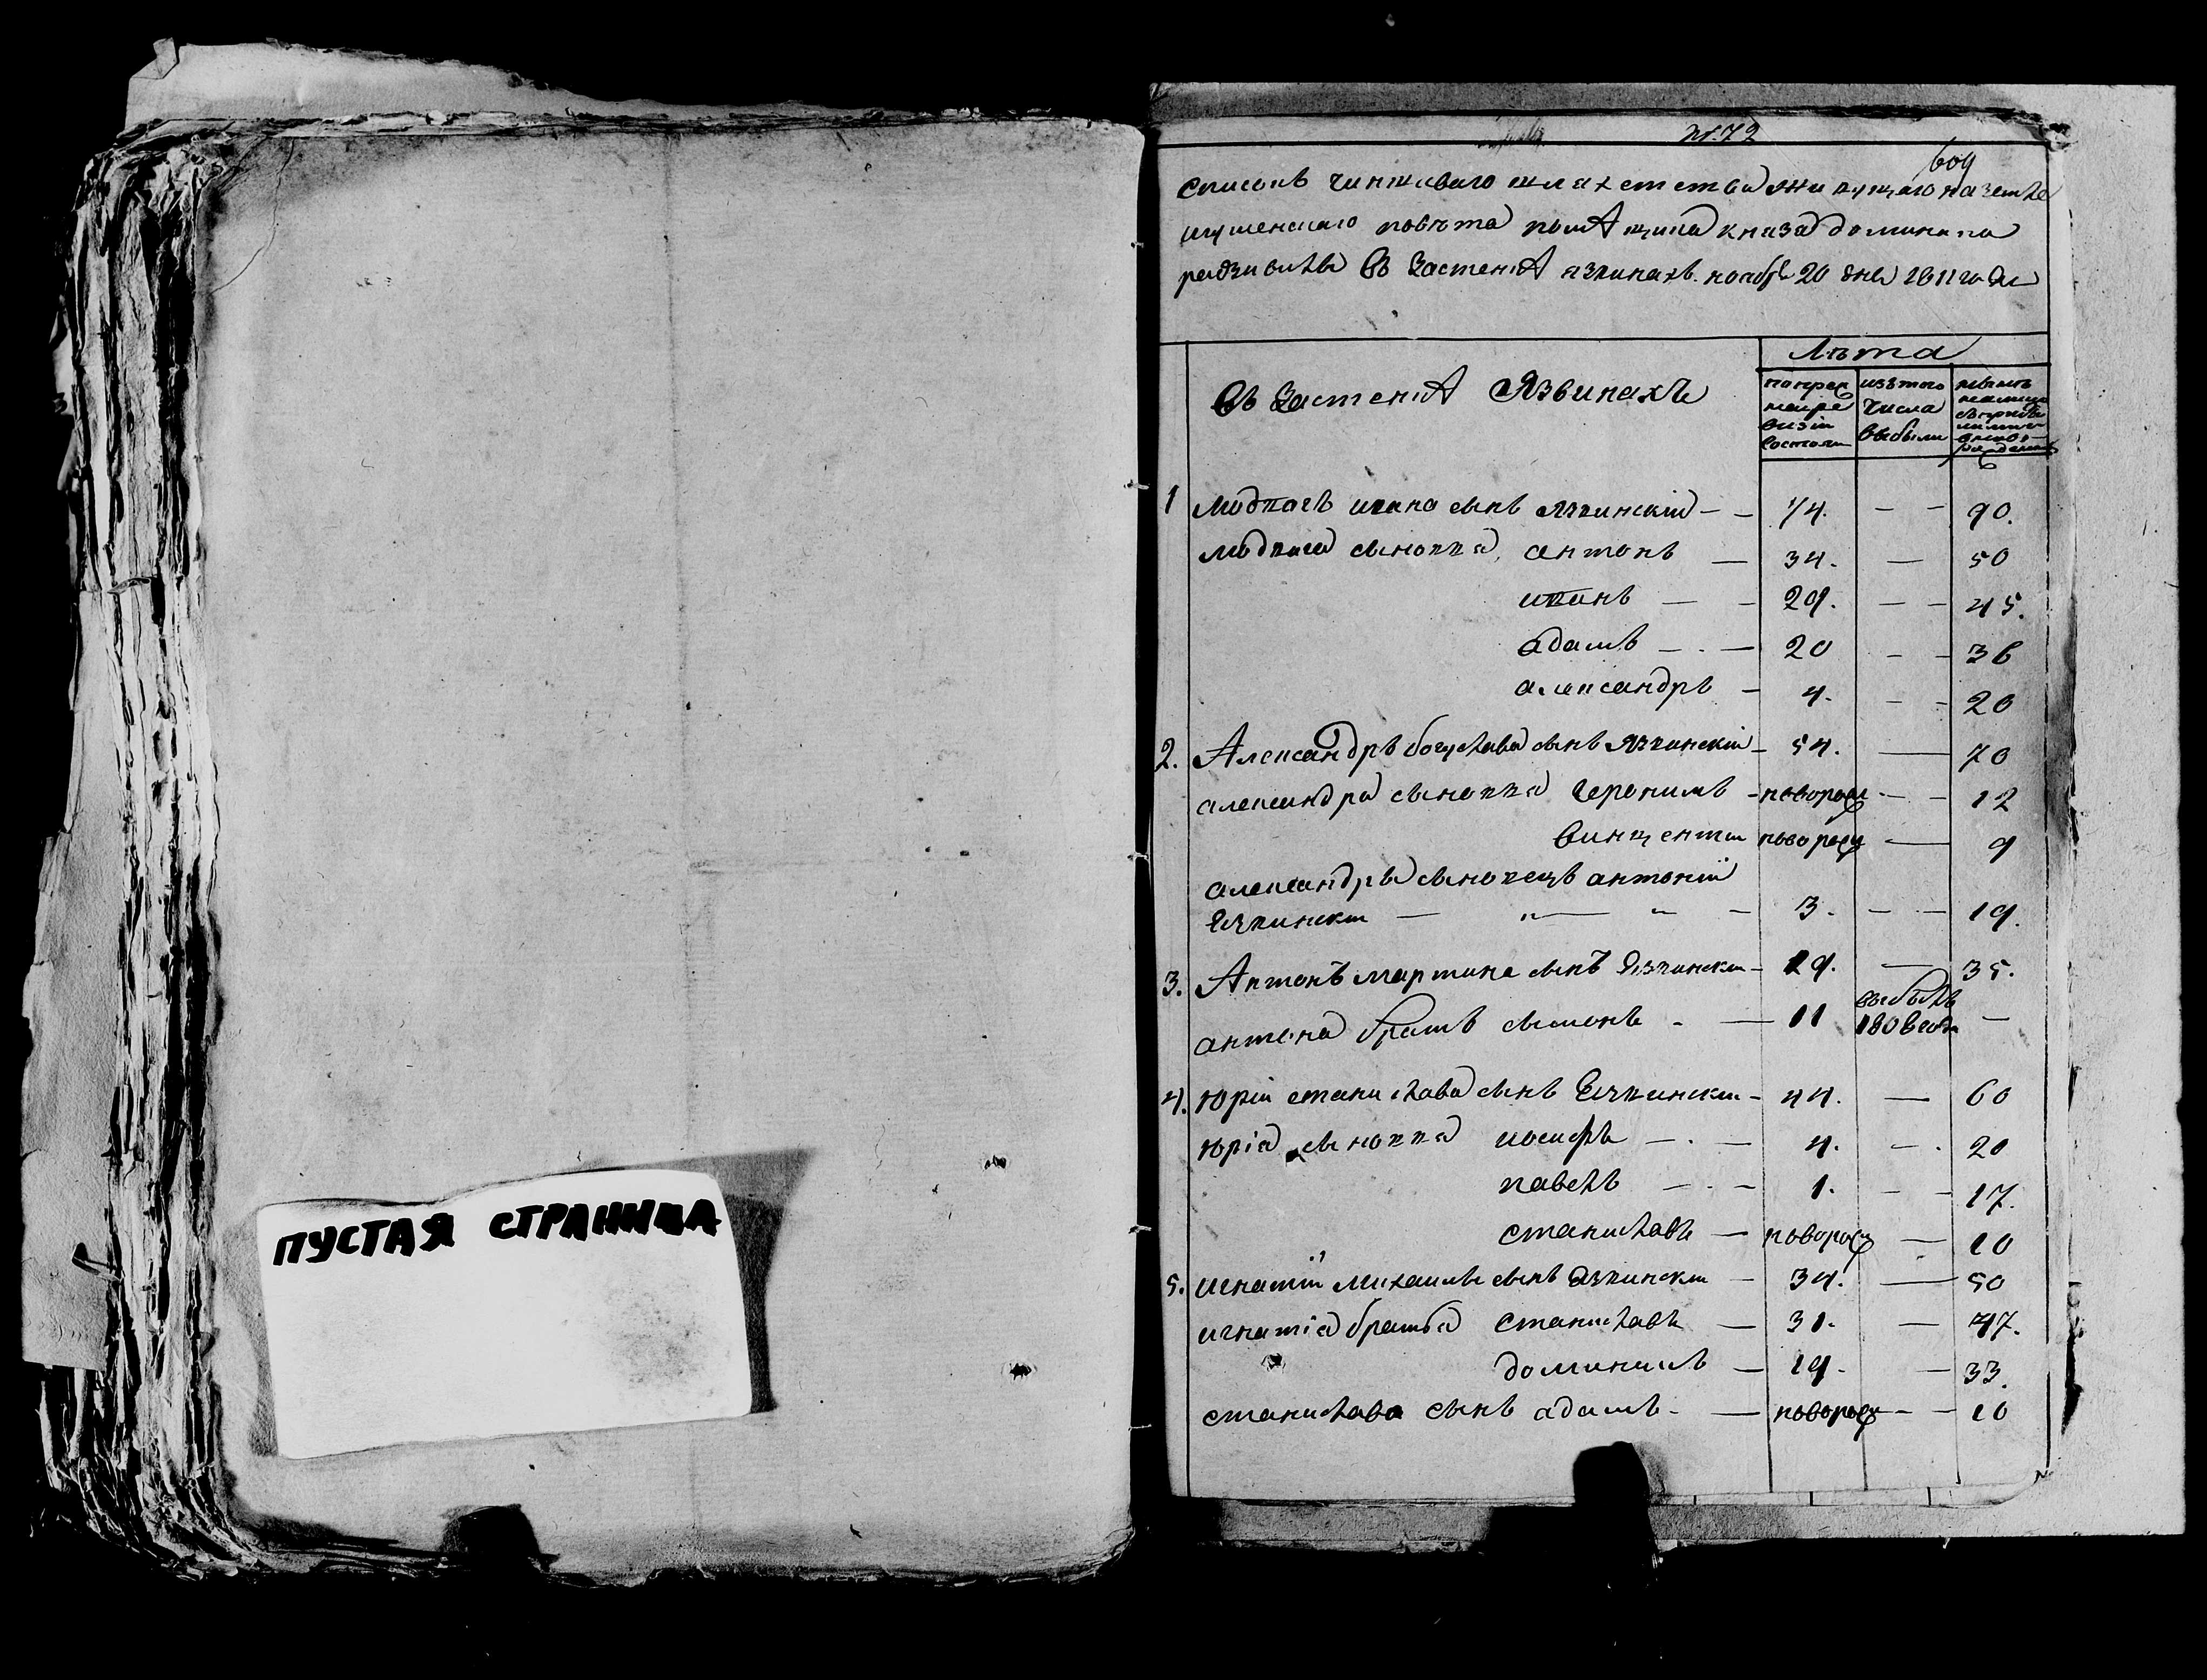 ПУСТАЯ СТРАНИЦА
№ 72
609
списокъ чиншоваго шляхетства живущаго на земле
игуменскаго повѣта помѣщика князя доминика
радзивила въ застенкѣ язвинахъ. ноабр 20 дня 1811 года
въ Застенкѣ Язвинахъ
Лѣта
по преж
ней ре
визіи
состояли
изъ того
числа
выбыли
1 Людвигъ ивана сынъ язвинскій — — 74. — — 90.
людвига сыновья, антонъ — 34. — 50
иванъ — — 29. — — 45.
адамъ — . — 20 — — 36
александръ — 4. — — 20
2. Александръ богуслава сынъ язвинскій — 54. — 70
александра сыновья Геронимъ — новорож — — 12
винцентій новорож — 9
александра сыновецъ антоній
Язвинскій — „ — „ — 3. — — 19.
3. Антонъ мартина сынъ Язвинскій — 19. — 35.
антона братъ сымонъ — — 11 выбылъ
1806 года —
4. юрій станислава сынъ Язвинскій — 44. — 60
юріа сыновья иосифъ — . — 4. — . 20
павелъ — . — 1. — — 17.
станиславъ — новорож — 10
5. игнатій михаила сынъ Язвинскій — 34. — 50
игнатіа братьа станиславъ — 31. — 47.
доминикъ — 19. — 33.
станислава сынъ адамъ — — новорож — — 10